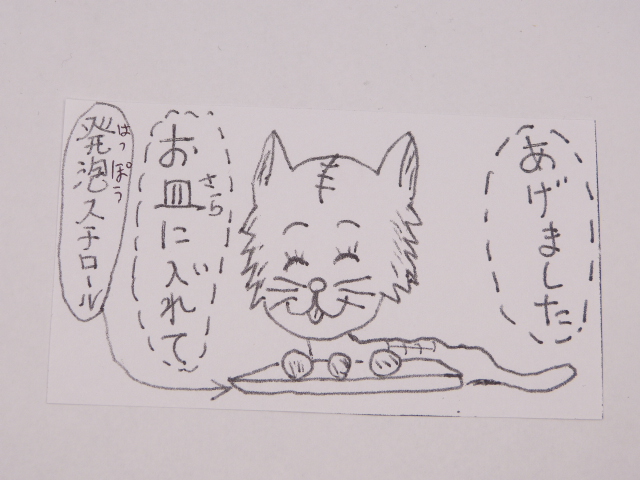 あげました
お皿に入れて
さら
発泡スチロール
はっぽう